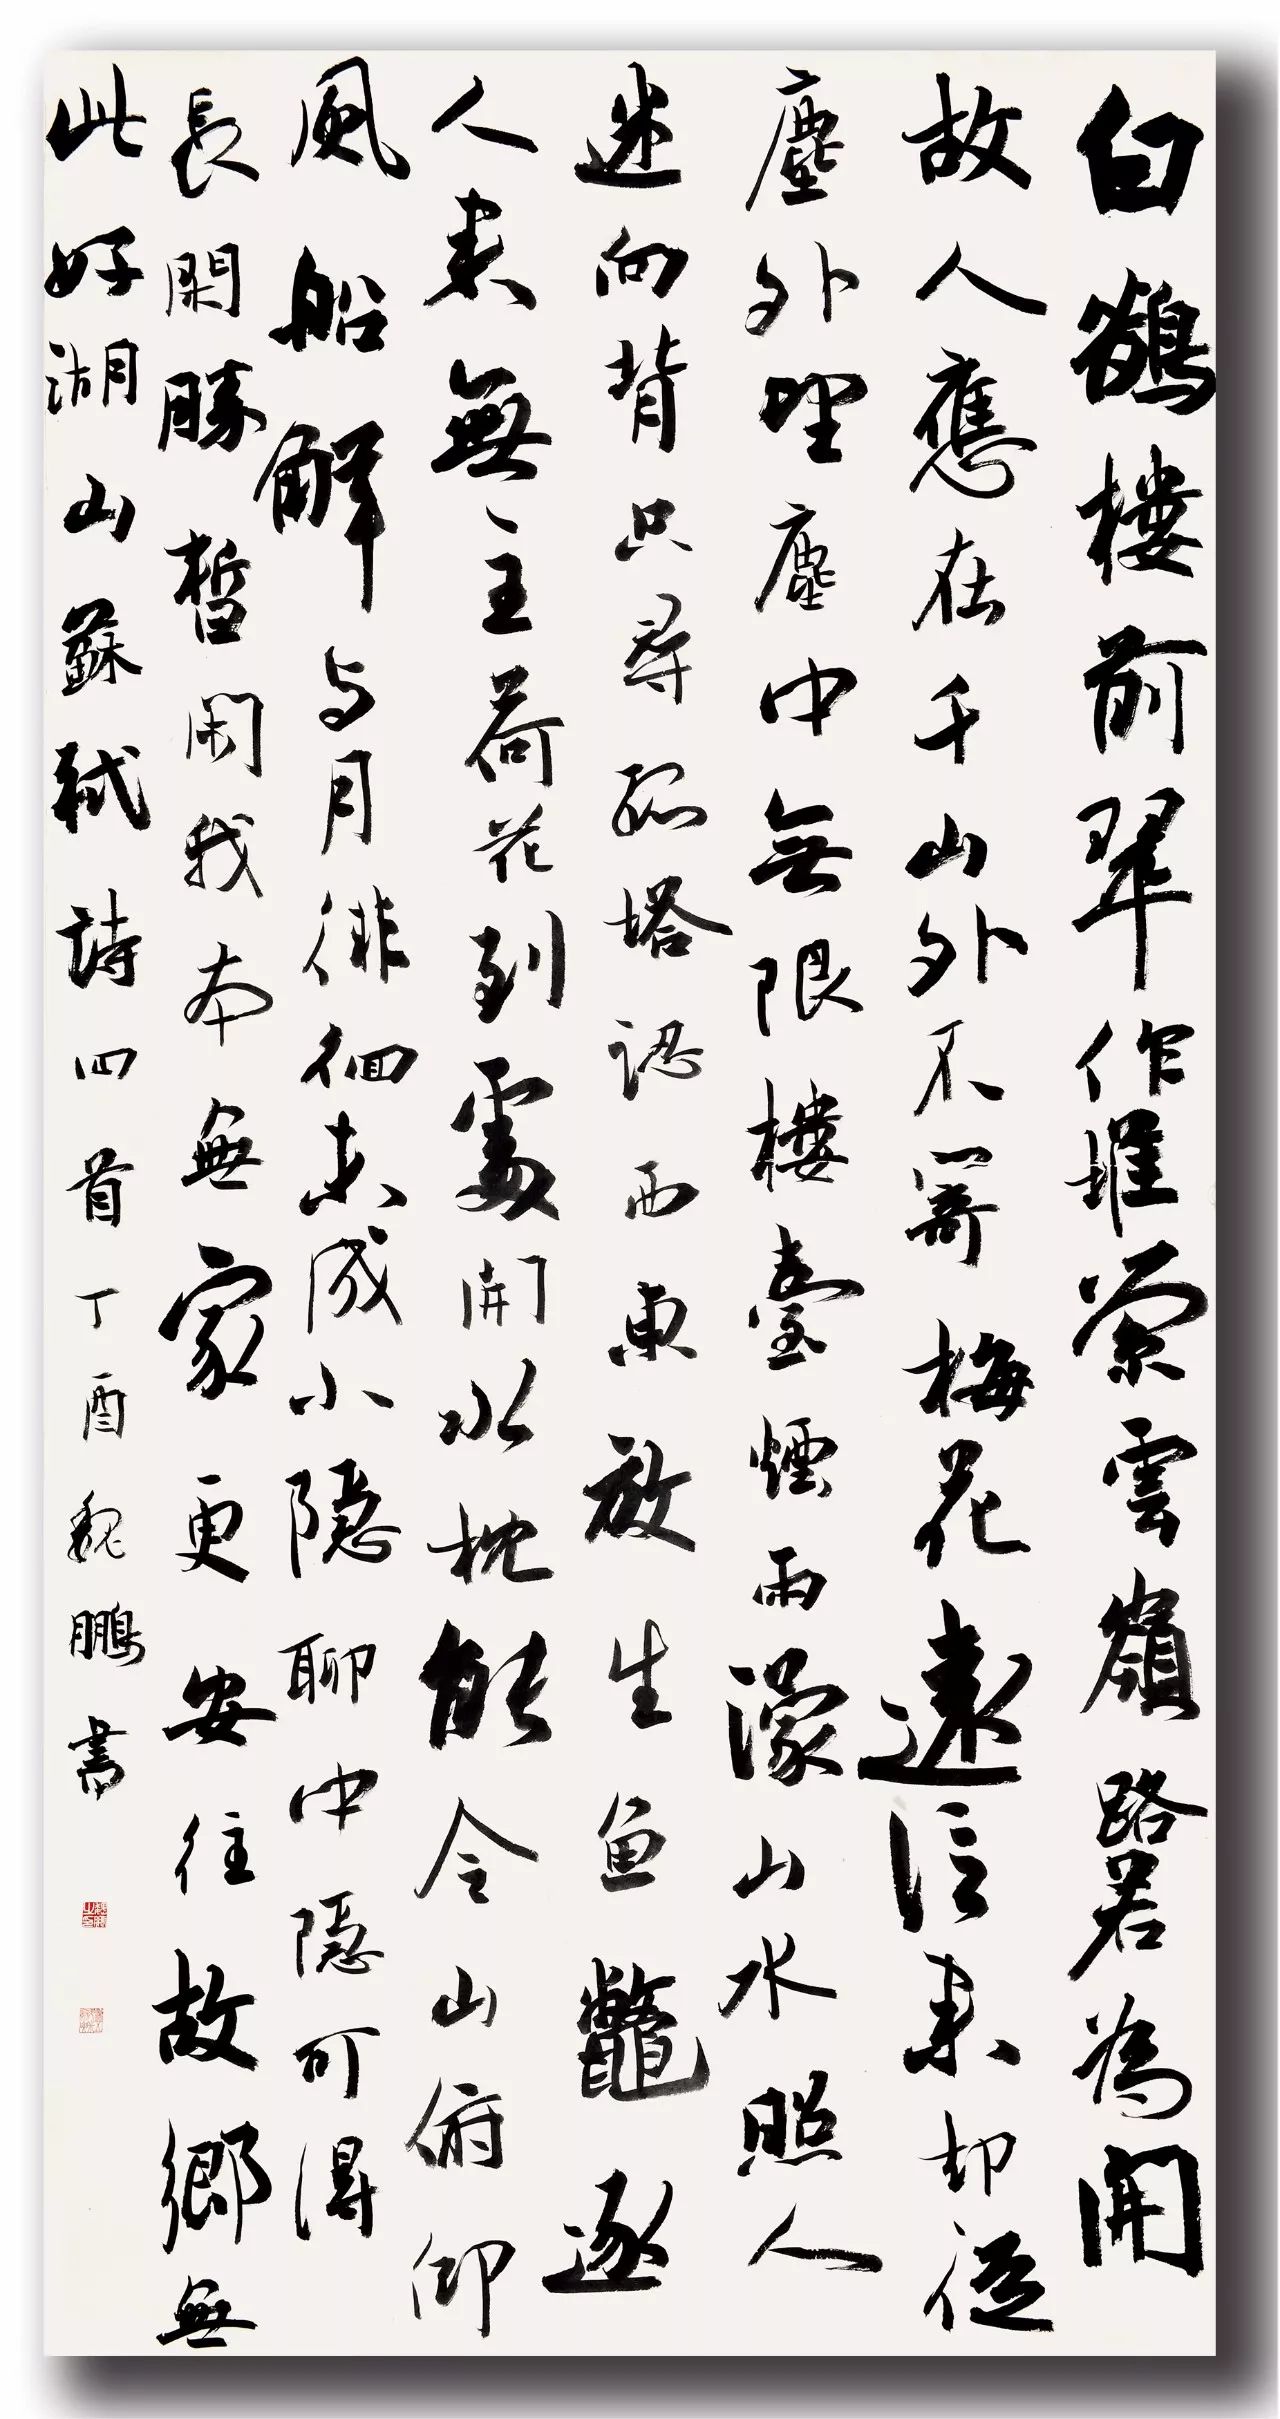 白鶴樓前翠作堆縈雲嶺路若為開
故人應在千山外不寄梅花遠信来却從
塵外望塵中無限樓臺煙雨濛山水照人
迷向背只尋孤塔認西東放生魚鱉逐
人来無主荷花到處開水枕能令山俯仰
風船解与月徘徊未成小隱聊中隱可得
長閑勝暫閑我本無家更安往故鄉無
此好湖山蘇軾詩四首丁酉魏鵬書